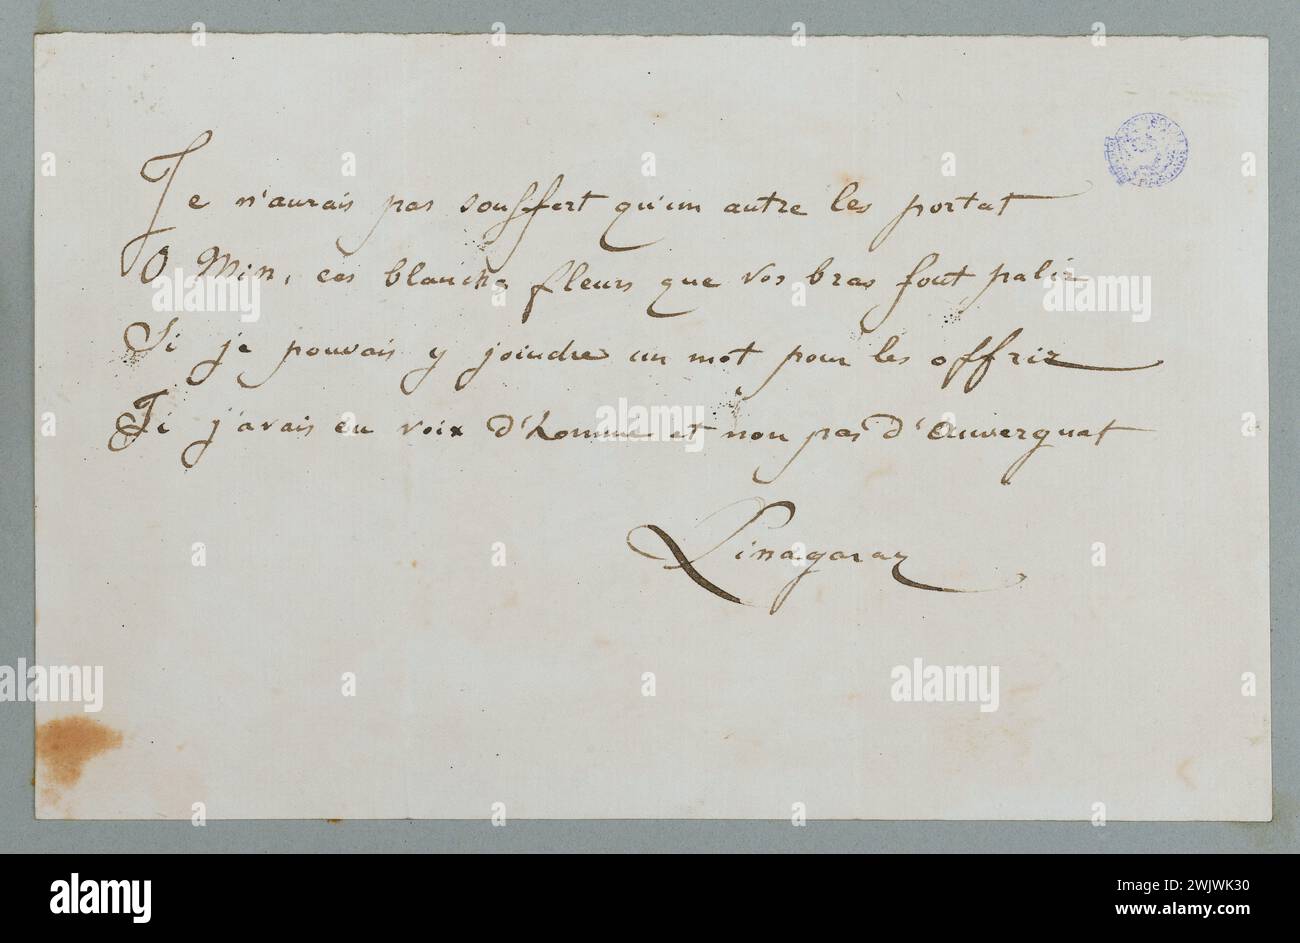 Je n'aurais pas souffert qu'un autre les portat
O Min, ces blanches fleurs que vos bras font palir
Si je pouvais y joindre un mot pour les offrir
Si j'avais eu voix d'homme et non pas d'Auvergnat
Linagaray
alamy
Image ID: 2WJWK30
www.alamy.com